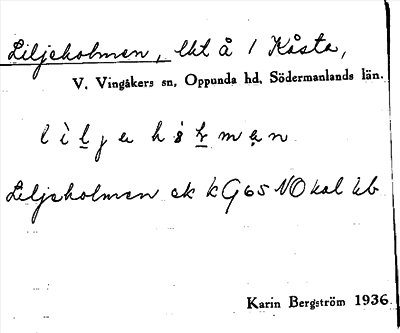 Liljeholmen, lht å 1 Kåsta,
V. Vingåkers sn, Oppunda hd, Södermanlands län.
Liljeholmen ek kG65 NO kal
Karin Bergström 1936.